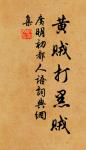 黄賊打黑賊
唐明初都人語詞典網
集